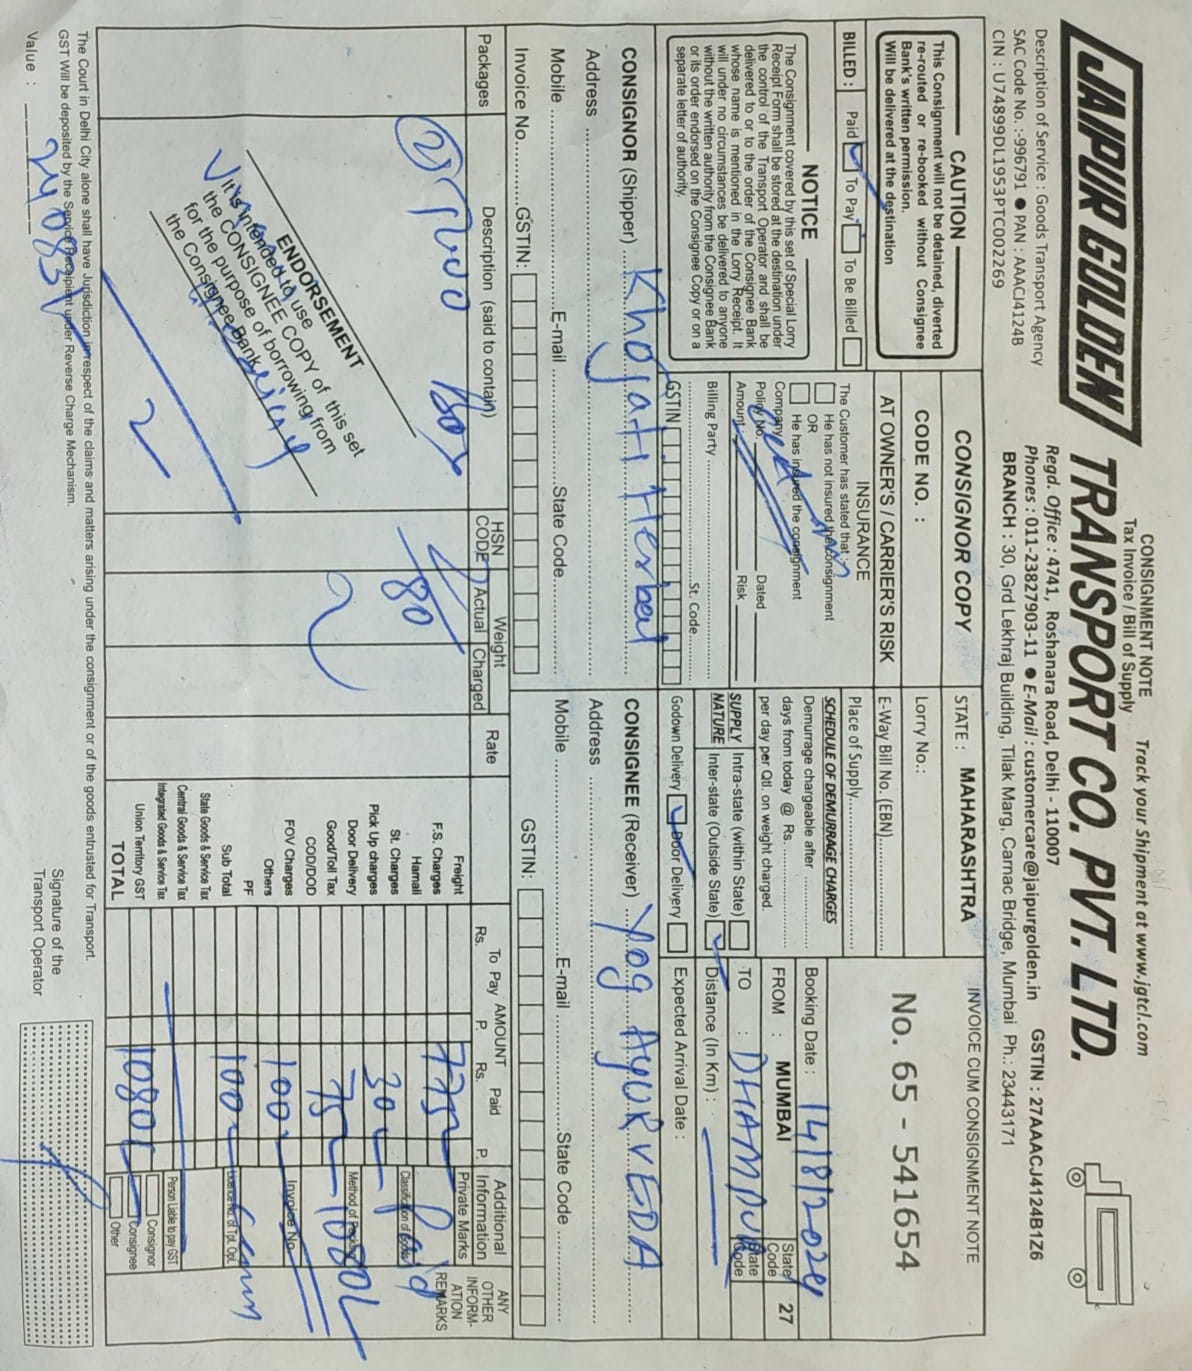 CONSIGNMENT NOTE
Tax Invoice / Bill of Supply
Track your Shipment at www.jgtcl.com
JAIPUR GOLDEN TRANSPORT CO. PVT. LTD.
Regd. Office : 4741, Roshanara Road, Delhi - 110007
Description of Service : Goods Transport Agency
Phones : 011-23827903-11 ● E-Mail : customercare@jaipurgolden.in
GSTIN : 27AAACJ4124B1Z6
SAC Code No. :-996791 ● PAN : AAACJ4124B
BRANCH : 30, Grd Lekhraj Building, Tilak Marg, Carnac Bridge, Mumbai Ph.: 23443171
CIN : U74899DL1953PTC002269
CAUTION
This Consignment will not be detained, diverted
re-routed or re-booked without Consignee
Bank's written permission.
Will be delivered at the destination
CONSIGNOR COPY
STATE : MAHARASHTRA
INVOICE CUM CONSIGNMENT NOTE
CODE NO. :
Lorry No.:
No. 65 - 541654
AT OWNER'S / CARRIER'S RISK
E-Way Bill No. (EBN)
BILLED : Paid To Pay To Be Billed
INSURANCE
The Customer has stated that :-
He has not insured the consignment
OR
He has insured the consignment
Company
Policy No. Dated
Amount Risk
Place of Supply
SCHEDULE OF DEMURRAGE CHARGES
Demurrage chargeable after
days from today @ Rs.
per day per Qtl. on weight charged.
Booking Date : 14/8/2024
FROM : MUMBAI State Code 27
TO : DHAMPUR State Code
NOTICE
The Consignment covered by this set of Special Lorry
Receipt Form shall be stored at the destination under
the control of the Transport Operator and shall be
delivered to or to the order of the Consignee Bank
whose name is mentioned in the Lorry Receipt. It
will under no circumstances be delivered to anyone
without the written authority from the Consignee Bank
or its order endorsed on the Consignee Copy or on a
separate letter of authority.
Billing Party
St. Code
GSTIN
SUPPLY NATURE Intra-state (within State)
Inter-state (Outside State)
Distance (In Km) :
Godown Delivery Door Delivery
Expected Arrival Date :
CONSIGNOR (Shipper) Khojati Herbal
CONSIGNEE (Receiver) Yog AYURVEDA
Address
Address
Mobile E-mail State Code
Mobile E-mail State Code
Invoice No. GSTIN:
GSTIN:
Packages Description (said to contain) HSN CODE Weight Actual Charged Rate
AMOUNT
To Pay Rs. P. Paid Rs. P.
Additional Information
Private Marks
ANY OTHER INFORMATION
REMARKS
Box
80
Freight 775
F.S. Charges
Hamali
St. Charges
Pick Up charges 30
Door Delivery
Good/Toll Tax 75
COD/DOD
FOV Charges 100
Others
PF
Sub Total 100
State Goods & Service Tax
Central Goods & Service Tax
Integrated Goods & Service Tax
Union Territory GST
TOTAL 1080
Paid
Classification of Goods
Method of Packing
1080
Invoice No.
Licence No. of Tpt. Opt.
Person Liable to pay GST
Consignor
Consignee
Other
ENDORSEMENT
It is intended to use
the CONSIGNEE COPY of this set
for the purpose of borrowing from
the Consignee Bank
The Court in Delhi City alone shall have Jurisdiction in respect of the claims and matters arising under the consignment or of the goods entrusted for Transport.
GST Will be deposited by the Service Recipient under Reverse Charge Mechanism.
Value : 24083/
Signature of the
Transport Operator